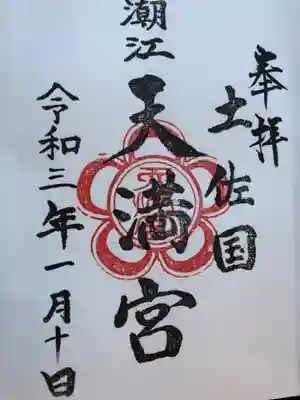 奉拝
土佐国
潮江
天満宮
令和三年一月十日